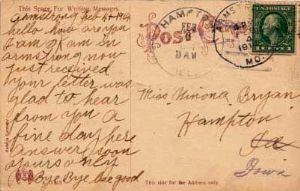 This Space For Writing Messages
Armstrong
hello how are you
I am I am in
armstrong now
just received
your letter was
glad to hear
from you a
fine day here
Answer soon
yours only
Bye Bye be good
HAMPT
POST
8 AM
ARMS
MO.
Miss Minona Bryan
Hampton
Iowa
This side for the Address only